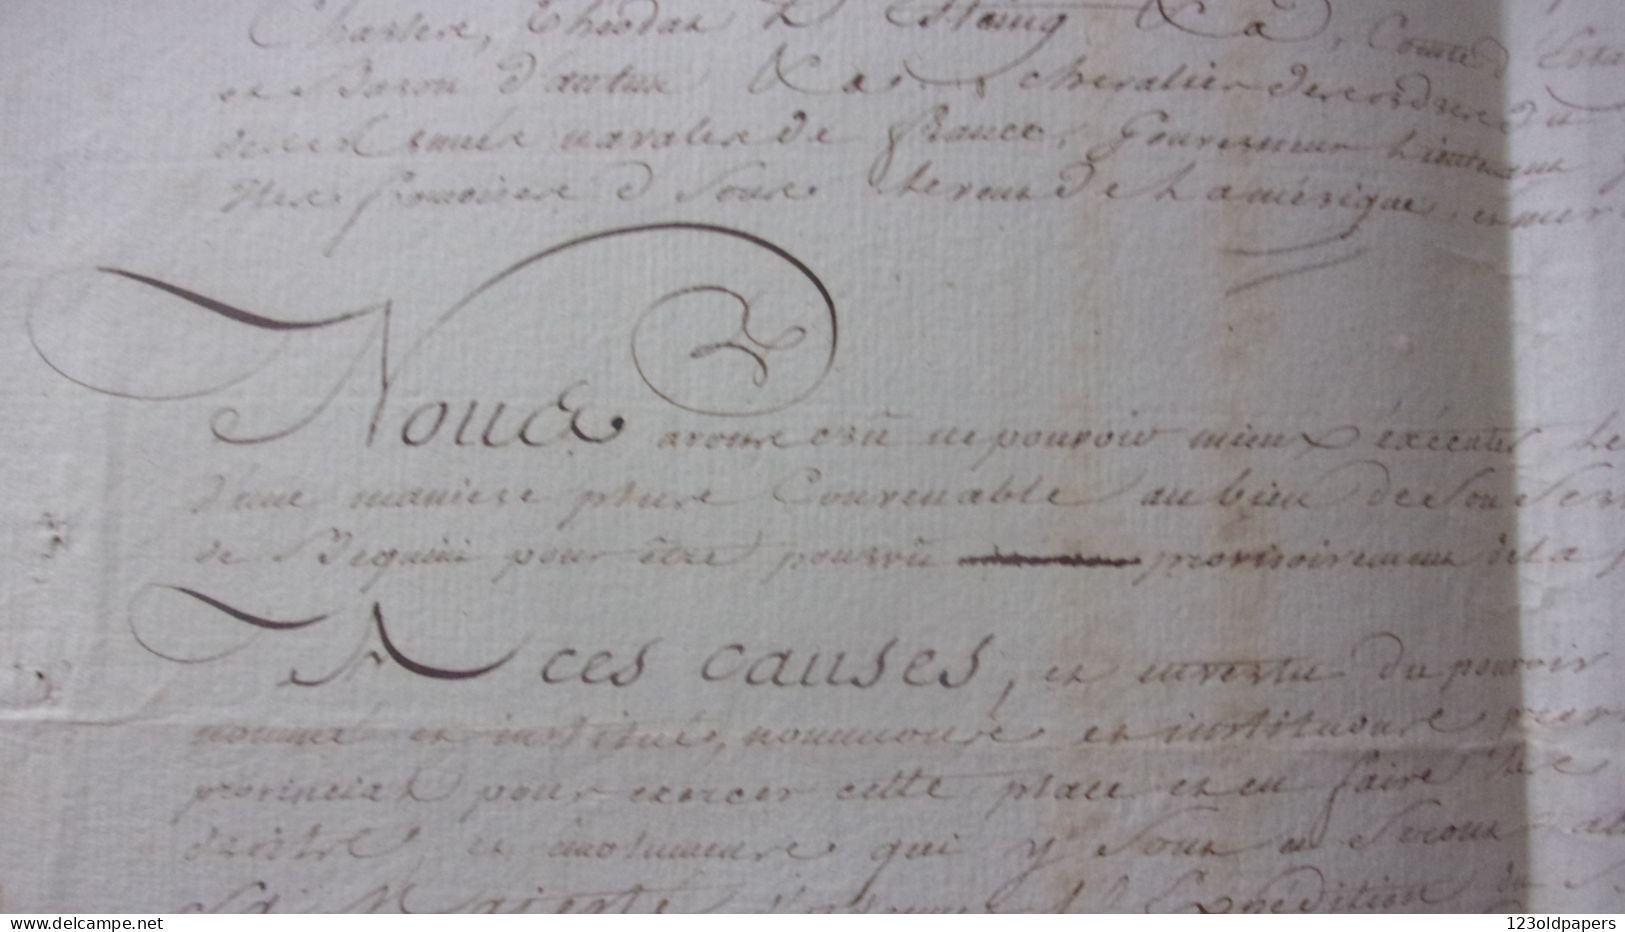 Charles, Théodat D'Estaing &ca, Comte D'Esta
et Baron d'autun &ca, chevalier des ordres du
des armées navales de france, Gouverneur Lieutenant
Isles françoises sous le vent de L'amérique, et mer
Nous avons crû ne pouvoir mieux éxécuter Le
d'une maniere plus Convenable au bien de Son Ser
de Béquin pour être pourvû provisoirement de la
A ces causes, et en vertu du pouvoir
nommé et institué, nommons et instituons
provincial pour exercer cette place et en faire les
droits, et émolumens qui y sont ou seront at
Sa Majesté L'Expédition
123oldpapers